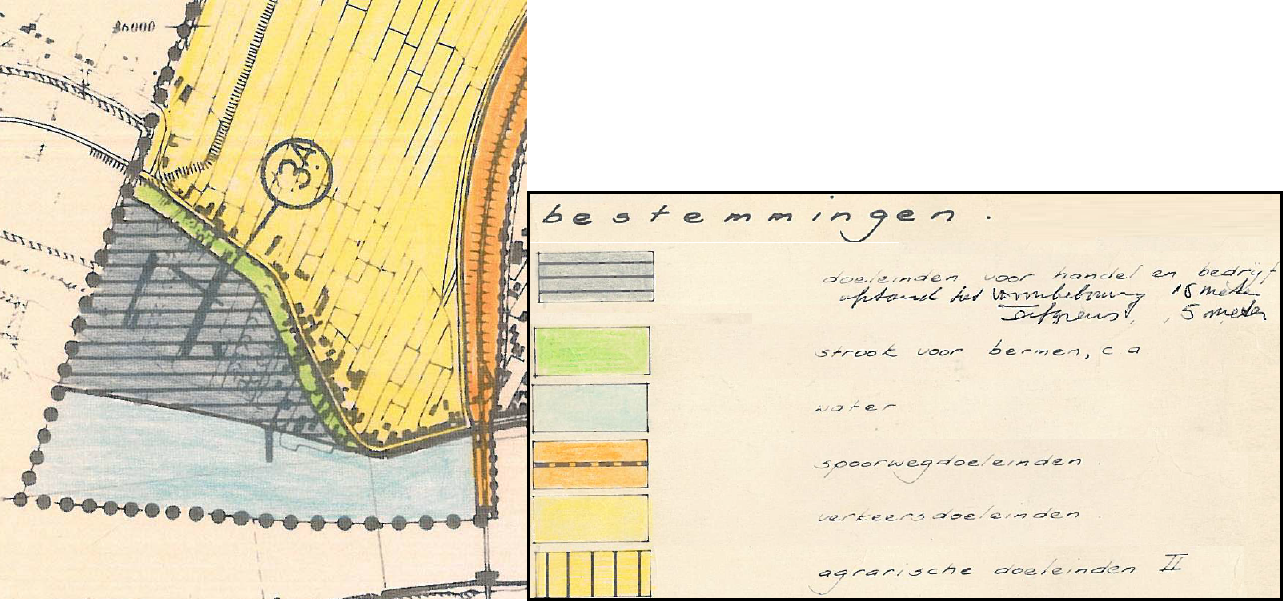 86000
34
bestemmingen.
doeleinden voor handel en bedrijf
afstand tot 15 meter
5 meter
strook voor bermen, c a
water
spoorwegdoeleinden
verkeersdoeleinden
agrarische doeleinden II